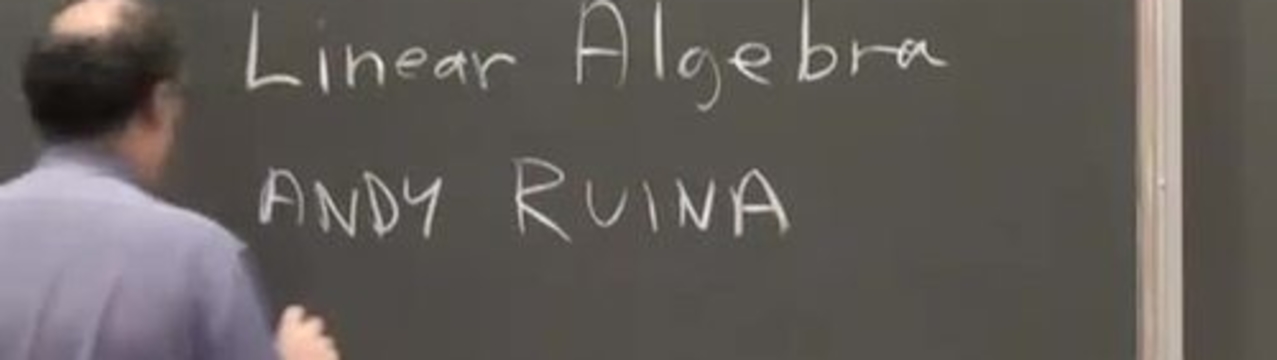 Linear Algebra
ANDY RUINA